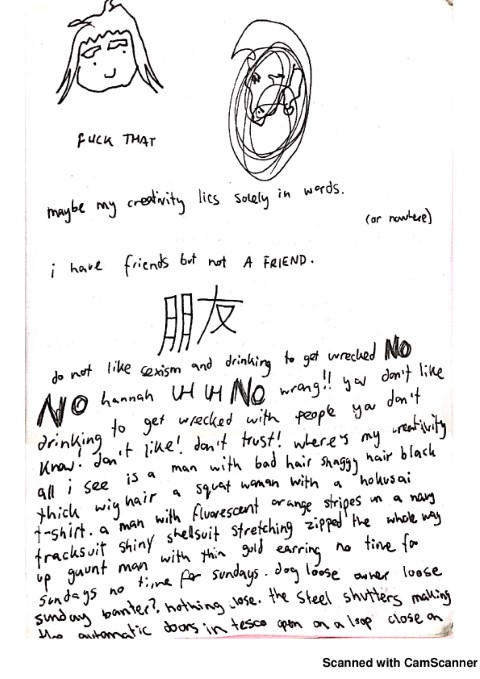 FUCK THAT
maybe my creativity lies solely in words.
(or nowhere)
i have friends but not A FRIEND.
朋友
do not like sexism and drinking to get wrecked NO
NO hannah UH UH NO wrong!! you don't like
drinking to get wrecked with people you don't
know! don't like! don't trust! where's my creativity
all i see is a man with bad hair shaggy hair black
thick wig hair a squat woman with a hokusai
t-shirt. a man with fluorescent orange stripes on a navy
tracksuit shiny shellsuit stretching zipped the whole way
up gaunt man with thin gold earring no time for
sundays no time for sundays. dog loose owner loose
sunday banter?. nothing close. the steel shutters making
the automatic doors in tesco open on a loop close on
Scanned with CamScanner